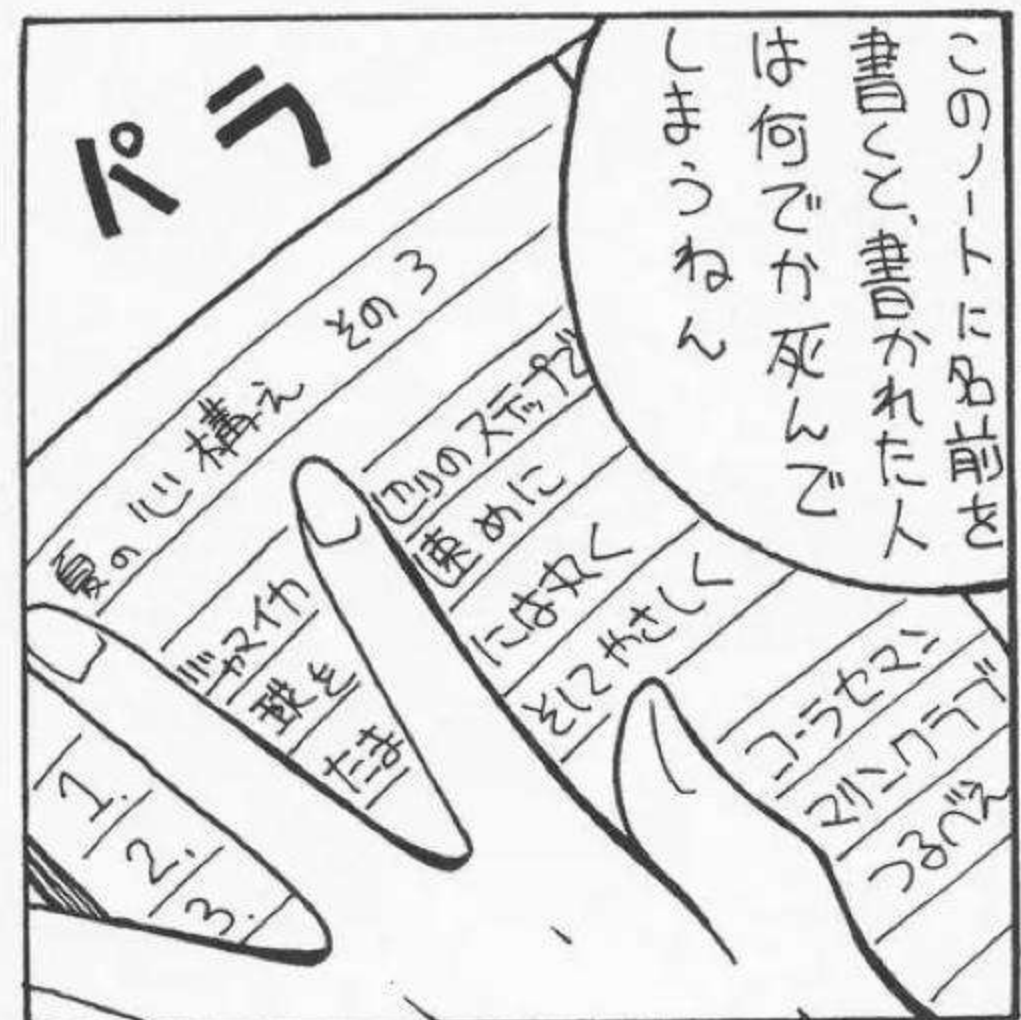 このノートに名前を
書くと、書かれた人
は何でか死んで
しまうねん
パラ
夏の心構え その3
1. ジャマイカ のステップで
2. めに
3. たま には丸く
そしてやさしく
コーラセマン
マリンクラブ
つるべえ